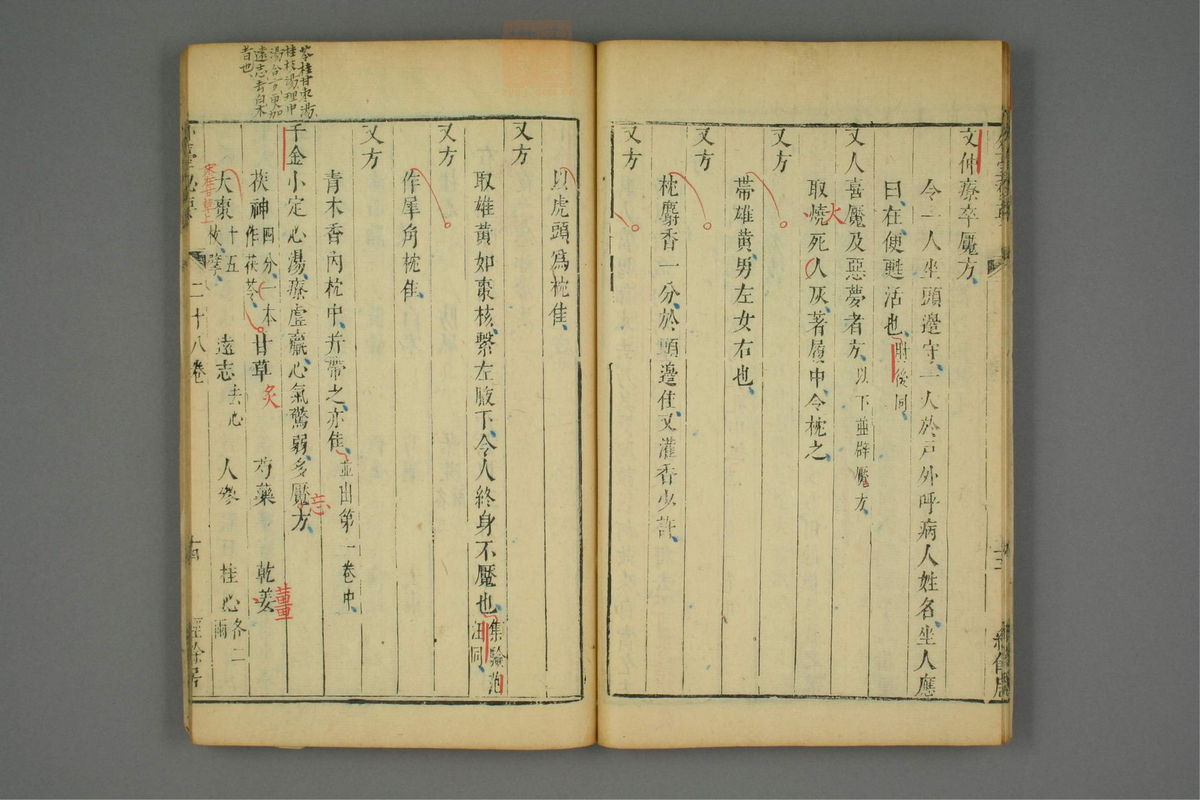 文仲療卒魘方
令一人坐頭邊守一人於戶外呼病人姓名坐人應
曰在便甦活也肘後同
又人喜魘及惡夢者方以下並辟魘方
取燒死人灰著履中令枕之
火
又方
帶雄黃男左女右也
又方
枕麝香一分於頭邊佳又灌香少許
又方
以虎頭爲枕佳
又方
取雄黃如棗核繫左腋下令人終身不魘也集驗范汪同
又方
作犀角枕佳
又方
青木香內枕中并帶之亦佳並出第一卷中
千金小定心湯療虛羸心氣驚弱多魘方
忘
茯神四分一本作茯苓 甘草 芍藥 乾姜
炙
薑
大棗十五枚擘 遠志去心 人參 桂心各二兩
苓桂甘棗湯
桂枝湯理中
湯合方更加
遠志去白朮
者也
二十八卷
十四
經餘居